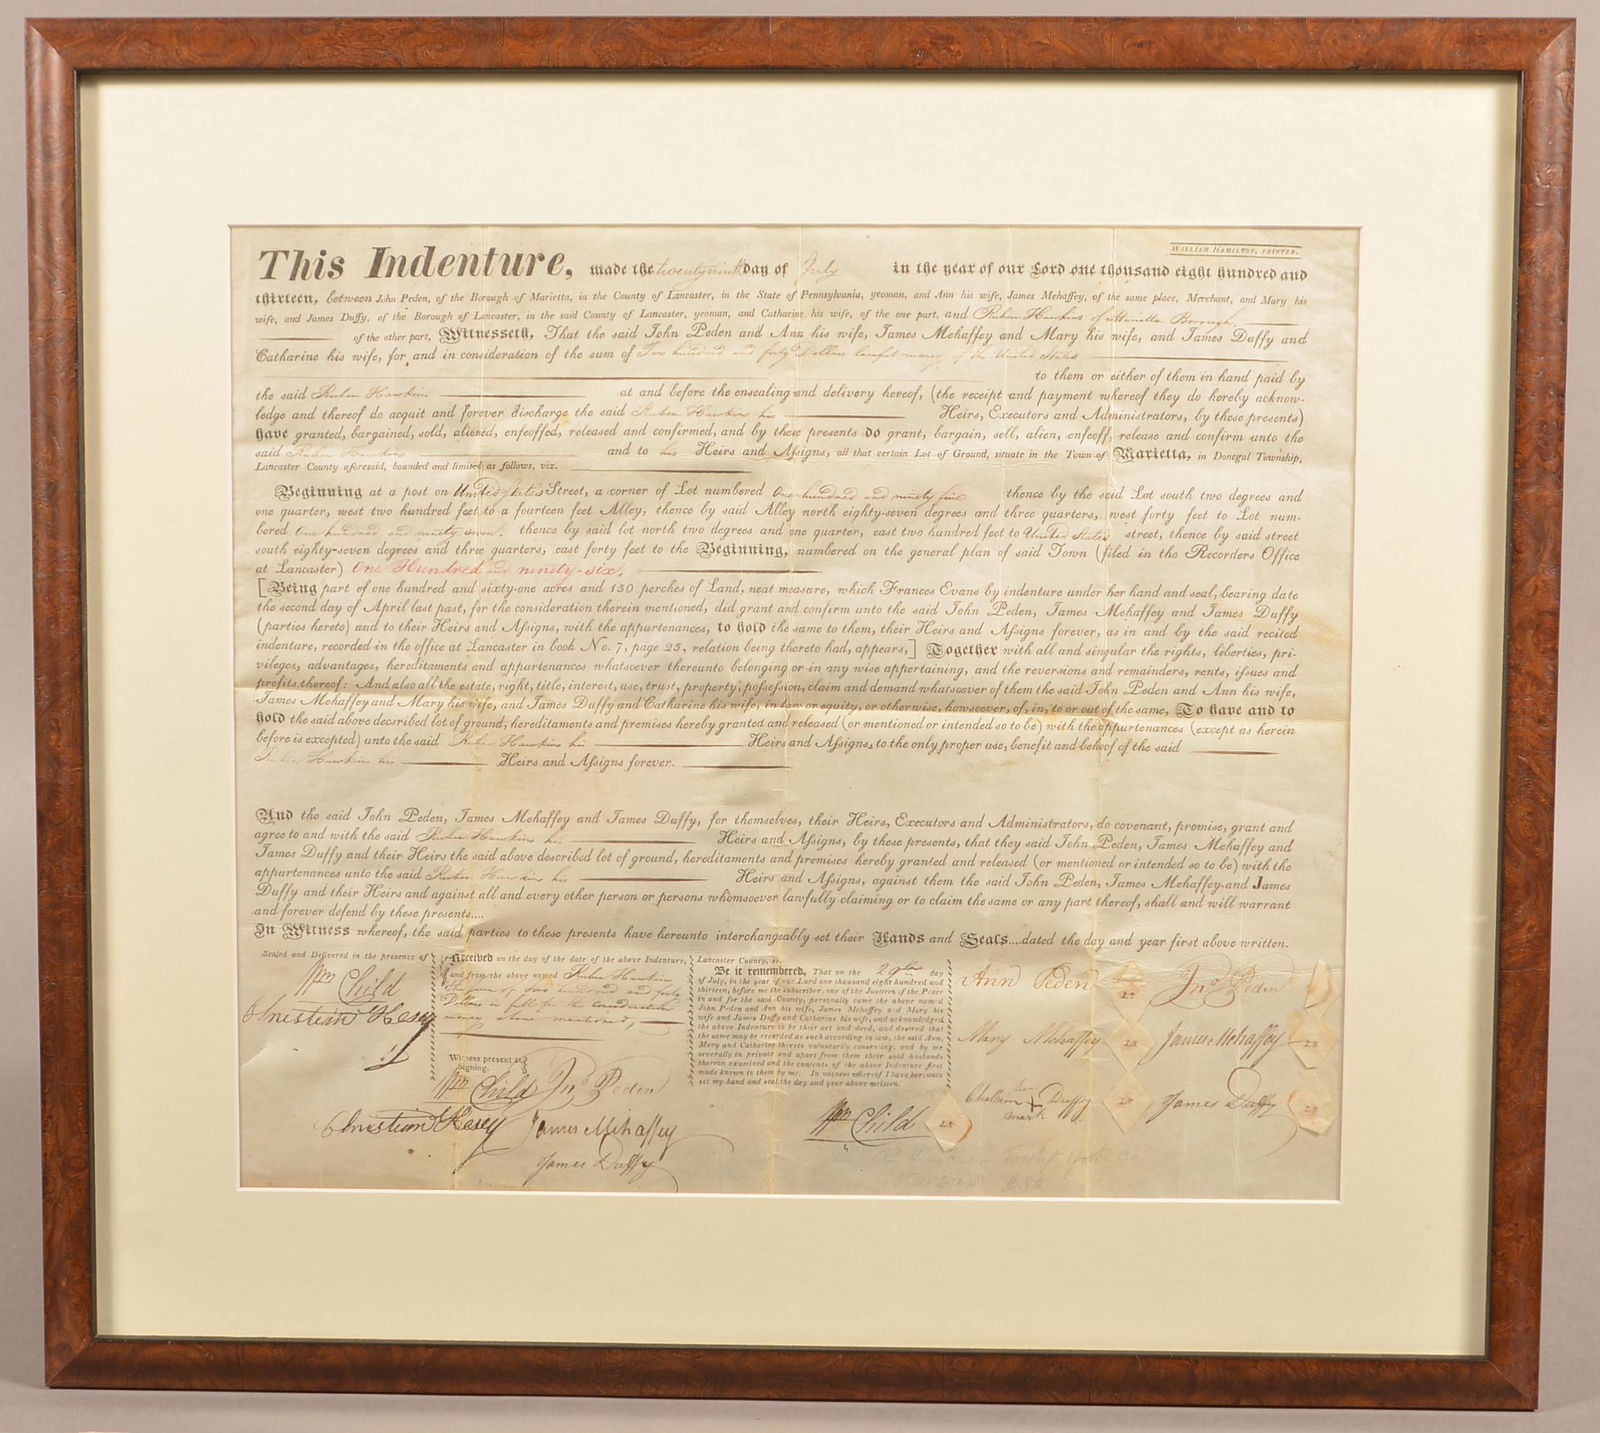 WILLIAM HAMILTON, PRINTER.
This Indenture, made the twenty ninth day of July in the year of our Lord one thousand eight hundred and
thirteen, between John Peden, of the Borough of Marietta, in the County of Lancaster, in the State of Pennsylvania, yeoman, and Ann his wife, James Mehaffey, of the same place, Merchant, and Mary his
wife, and James Duffy, of the Borough of Lancaster, in the said County of Lancaster, yeoman, and Catharine his wife, of the one part, and Ruben Hawkins of Marietta Borough,
of the other part, Witnesseth, That the said John Peden and Ann his wife, James Mehaffey and Mary his wife, and James Duffy and
Catharine his wife, for and in consideration of the sum of Two hundred and forty Dollars lawful money of the United States
to them or either of them in hand paid by
the said Ruben Hawkins at and before the ensealing and delivery hereof, (the receipt and payment whereof they do hereby acknow-
ledge and thereof do acquit and forever discharge the said Ruben Hawkins his Heirs, Executors and Administrators, by these presents)
have granted, bargained, sold, aliened, enfeoffed, released and confirmed, and by these presents do grant, bargain, sell, alien, enfeoff, release and confirm unto the
said Ruben Hawkins and to his Heirs and Assigns, all that certain Lot of Ground, situate in the Town of Marietta, in Donegal Township,
Lancaster County aforesaid, bounded and limited as follows, viz.
Beginning at a post on United States Street, a corner of Lot numbered One hundred and ninety five thence by the said Lot south two degrees and
one quarter, west two hundred feet to a fourteen feet Alley, thence by said Alley north eighty-seven degrees and three quarters, west forty feet to Lot num-
bered One hundred and ninety seven, thence by said lot north two degrees and one quarter, east two hundred feet to United States street, thence by said street
south eighty-seven degrees and three quarters, east forty feet to the Beginning, numbered on the general plan of said Town (filed in the Recorders Office
at Lancaster) One Hundred and ninety-six.
[Being part of one hundred and sixty-one acres and 150 perches of Land, neat measure, which Frances Evans by indenture under her hand and seal, bearing date
the second day of April last past, for the consideration therein mentioned, did grant and confirm unto the said John Peden, James Mehaffey and James Duffy
(parties hereto) and to their Heirs and Assigns, with the appurtenances, to hold the same to them, their Heirs and Assigns forever, as in and by the said recited
indenture, recorded in the office at Lancaster in book No. 7, page 25, relation being thereto had, appears,] Together with all and singular the rights, liberties, pri-
vileges, advantages, hereditaments and appurtenances whatsoever thereunto belonging or in any wise appertaining, and the reversions and remainders, rents, issues and
profits thereof: And also all the estate, right, title, interest, use, trust, property, possession, claim and demand whatsoever of them the said John Peden and Ann his wife,
James Mehaffey and Mary his wife, and James Duffy and Catharine his wife, in law or equity, or otherwise, howsoever, of, in, to or out of the same, To have and to
hold the said above decsribed lot of ground, hereditaments and premises hereby granted and released (or mentioned or intended so to be) with the appurtenances (except as herein
before is excepted) unto the said Ruben Hawkins his Heirs and Assigns, to the only proper use, benefit and behoof of the said
Ruben Hawkins his Heirs and Assigns forever.
And the said John Peden, James Mehaffey and James Duffy, for themselves, their Heirs, Executors and Administrators, do covenant, promise, grant and
agree to and with the said Ruben Hawkins his Heirs and Assigns, by these presents, that they said John Peden, James Mehaffey and
James Duffy and their Heirs the said above described lot of ground, hereditaments and premises hereby granted and released (or mentioned or intended so to be) with the
appurtenances unto the said Ruben Hawkins his Heirs and Assigns, against them the said John Peden, James Mehaffey and James
Duffy and their Heirs and against all and every other person or persons whomsoever lawfully claiming or to claim the same or any part thereof, shall and will warrant
and forever defend by these presents....
In Witness whereof, the said parties to these presents have hereunto interchangeably set their Hands and Seals....dated the day and year first above written.
Sealed and Delivered in the presence of
Wm Child
Christian Hasey
Received on the day of the date of the above Indenture,
and from the above named Ruben Hawkins
the sum of two hundred and forty
Dollars in full for the consideration
money above mentioned,
Witness present at
Signing.
Wm Child Jno Peden
Christian Hasey James Mehaffey
James Duffy
Lancaster County, ss.
Be it remembered, That on the 29th day
of July, in the year of our Lord one thousand eight hundred and
thirteen, before me the subscriber, one of the Justices of the Peace
in and for the said County, personally came the above named
John Peden and Ann his wife, James Mehaffey and Mary his
wife and James Duffy and Catharine his wife, and acknowledged
the above Indenture to be their act and deed, and desired that
the same may be recorded as such according to law, the said Ann,
Mary and Catharine thereto voluntarily consenting, and by me
severally in private and apart from them their said husbands
thereon examined and the contents of the above Indenture first
made known to them by me. In witness whereof I have hereunto
set my hand and seal the day and year above written.
Wm Child LS
Ann Peden LS Jno Peden
Mary Mehaffey LS James Mehaffey LS
her
Duffy LS James Duffy LS
mark